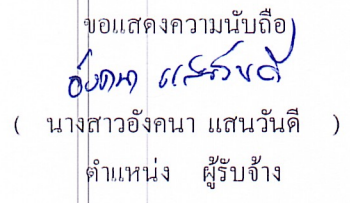 ขอแสดงความนับถือ
อังคณา แสนวันดี
( นางสาวอังคณา แสนวันดี )
ตำแหน่ง ผู้รับจ้าง